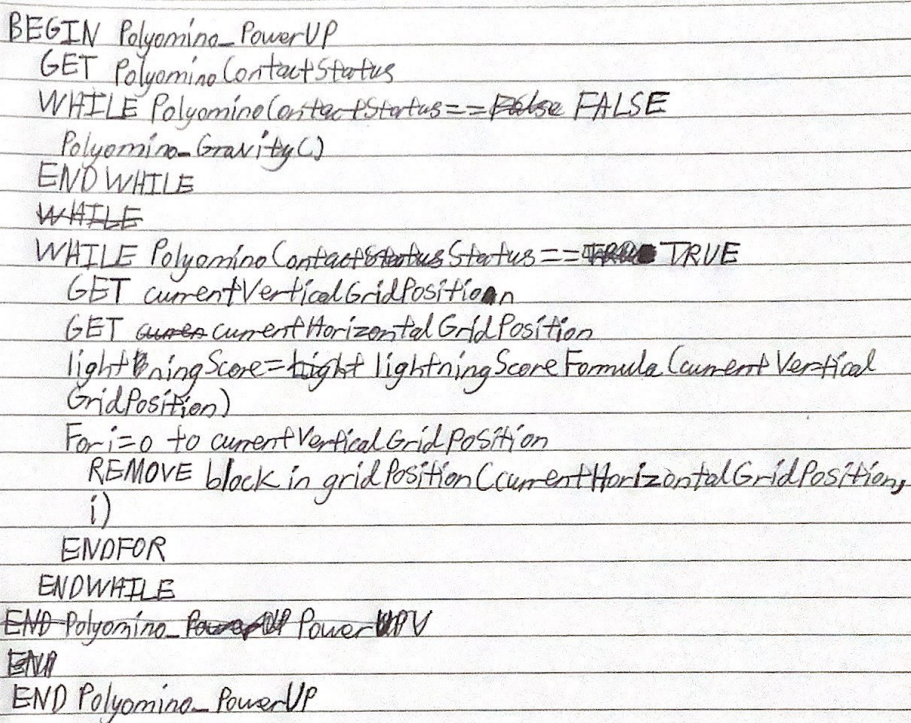 BEGIN Polyomino_PowerUP
GET PolyominoContactStatus
WHILE PolyominoContactStatus==False FALSE
Polyomino_Gravity()
END WHILE
WHILE
WHILE PolyominoContactStatus Status== TRUE
GET currentVerticalGridPosition
GET curren currentHorizontalGridPosition
lightningScore=hight lightningScoreFormula(currentVertical
GridPosition)
For i=0 to currentVerticalGridPosition
REMOVE block in gridPosition(currentHorizontalGridPosition,
i)
ENDFOR
ENDWHILE
END Polyomino_PowerUP PowerUPV
END
END Polyomino_PowerUP